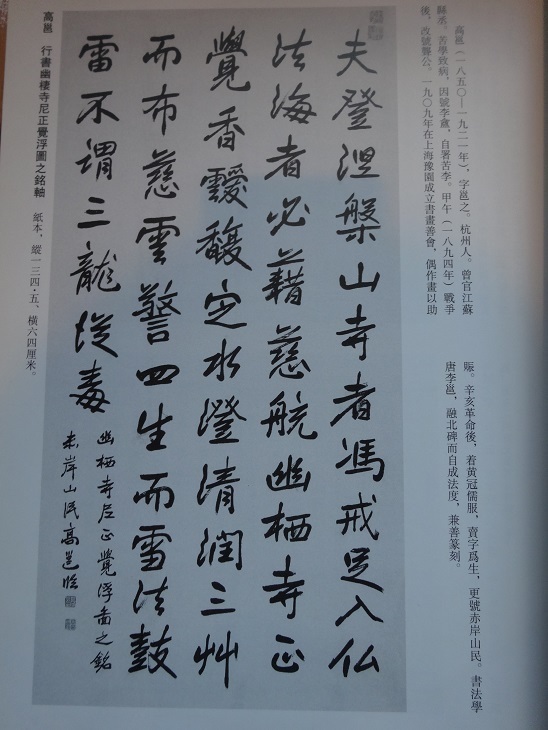 高邕（一八五〇—一九二一年），字邕之。杭州人。曾官江蘇
縣丞。苦學致病，因號李盦，自署苦李。甲午（一八九四年）戰爭
後，改號聾公。一九〇九年在上海豫園成立書畫善會，偶作畫以助
賑。辛亥革命後，着黄冠儒服，賣字爲生，更號赤岸山民。書法學
唐李邕，融北碑而自成法度，兼善篆刻。
夫登涅槃山寺者馮戒足入仏
法海者必藉慈航幽栖寺正
覺香靉馥定水澄清潤三艸
而布慈雲警四生而雪法鼓
雷不謂三龍從毒
幽栖寺尼正覺浮啚之銘
赤岸山民高邕臨
高邕　行書幽棲寺尼正覺浮圖之銘軸　紙本，縱一三四·五、橫六四厘米。